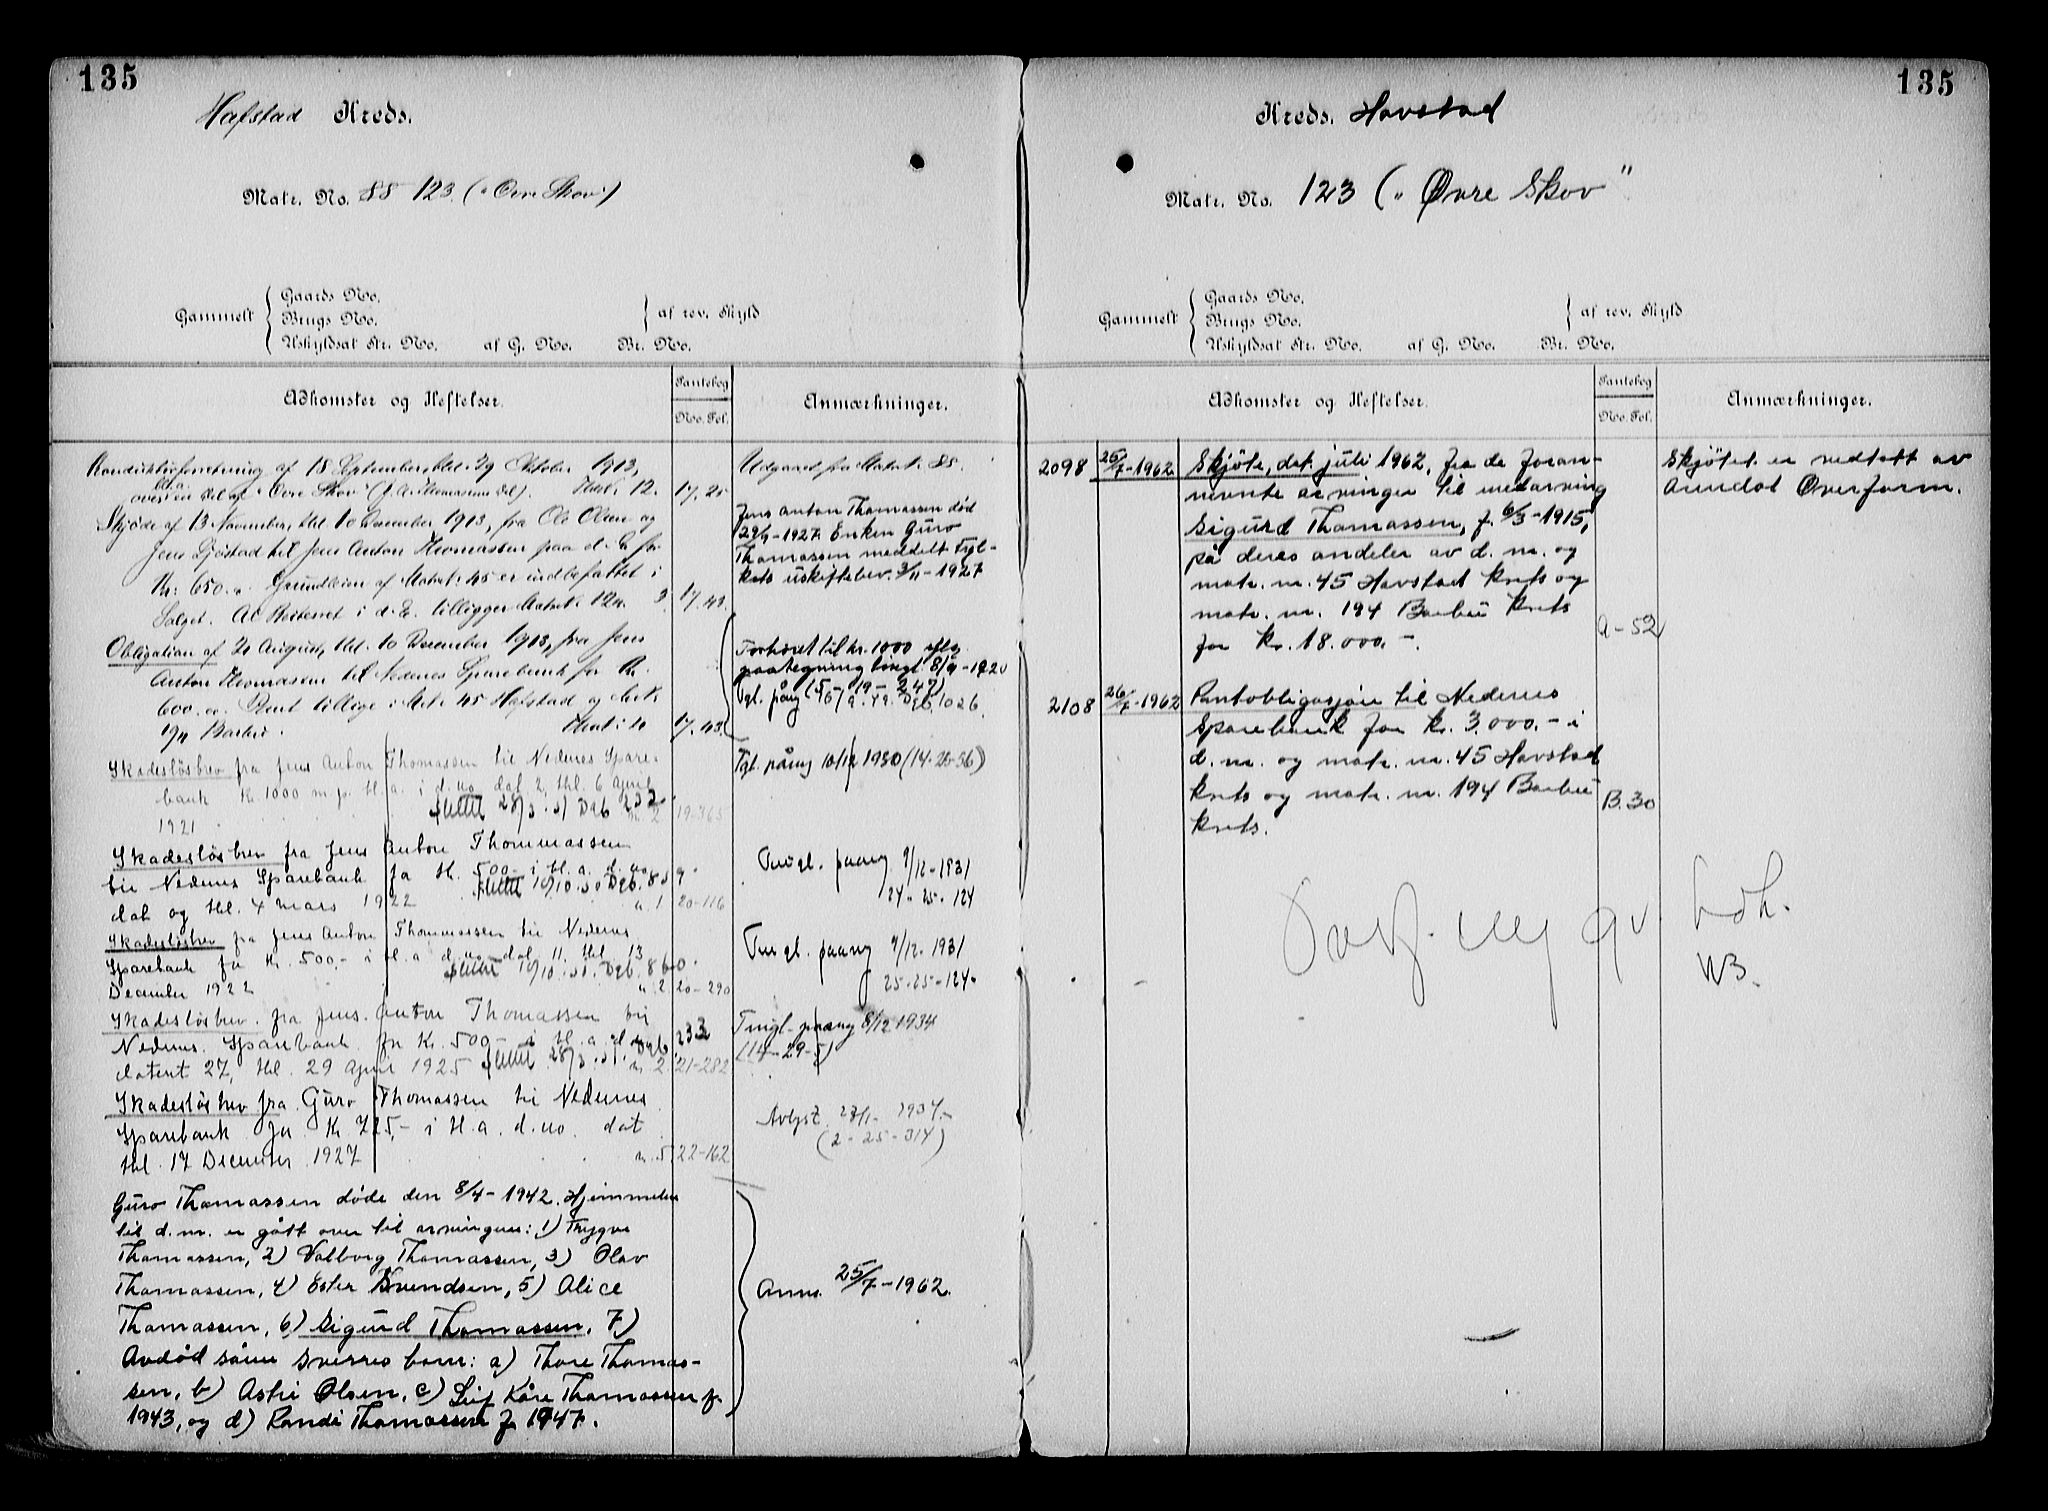 135
Hafstad Kreds.
Matr. No. 88 123 („Øvre Skov")
Gammelt
Gaards No.
Brugs No.
Uskyldsat Str. No. af G. No. Br. No.
af rev. Skyld
Adkomster og Heftelser.
Pantebog
No. Fol.
Anmærkninger.
Konduktørforretning af 18 September, thl. 29 Oktober 1913,
bl.a.
over en Del af "Øvre Skov" (J. A. Thomassens Del). 12. 17. 25
Skjøde af 13 November, thl. 10 December 1913, fra Ole Olsen og
Jens Sjøstad til Jens Anton Thomassen paa d. E. for
Kr. 650.00. Grundleien af Matr. 45 er indbefattet i
Salget. Al Beiteret i d. E. tilligger Matr. 124. 3. 17. 42.
Obligation af 21 August, thl. 10 December 1913, fra Jens
Anton Thomassen til Nedenes Sparebank for Kr.
600.00. Pant tillige i Mt. 45 Hafstad og Mt.
194 Barbu. 17. 43.
Skadesløsbrev fra Jens Anton Thomassen til Nedenes Spare-
bank Kr. 1000 m. p. Hl. a. i d. no dat 2, thl. 6 April
28/3. 31 Dgb 232.
1921 n. 2 19-365
Skadesløsbrev fra Jens Anton Thommassen
til Nedenes Sparebank for Kr. 500.- i Hl. a. d. no
10/10. 30 Dgb. 859.
dat og thl. 4 mars 1922 n. 1 20-116
Skadesløsbrev fra Jens Anton Thommassen til Nedenes
Sparebank for Kr. 500,- i Hl. a d. no dat 11. thl. 13
10/10. 31. Dgb. 860.
December 1922 n. 2 20-290
Skadesløsbrev. fra Jens. Anton Thomassen til
Nedenes. Sparebank for Kr. 500- i Hl. a. d. no 233
datert 27, thl. 29 April 1925 28/3. 31. Dgb. n. 2 21-282
Skadesløsbrev fra Guro Thomassen til Nedenes
Sparebank for Kr. 725,- i Hl. a. d. no. dat
thl. 17 December 1927 n. 5 22-162
Guro Thomassen døde den 8/4-1942. Hjemmelen
til d.m. er gått over til arvingene: 1) Trygve
Thomassen, 2) Valborg Thomassen, 3) Olav
Thomassen, 4) Ester Svendsen, 5) Alice
Thomassen, 6) Sigurd Thomassen, 7)
Avdød sønn Sverres barn: a) Thore Thomas-
sen, b) Astri Olsen, c) Leif Kåre Thomassen f.
1943, og d) Randi Thomassen f. 1947.
Udgaaet fra Matr. 88.
Jens Anton Thomassen død
29/9-1927. Enken Guro
Thomassen meddelt Fyl-
kets uskiftebev. 3/11-1927
Forhøiet til kr. 1000 eflg
paategning tingl. 8/9-1920
(5-19-247)
Tgl. påtegn 10/12 1930 (14-25-56)
Tingl. paateg 9/12-1931
24-25-124
Tingl. paateg 9/12-1931
25-25-124.
Tingl. paateg 8/12 1934
(14-29-5)
Avlyst 23/1-1937.
(2-25-314)
Anm. 25/7-1962.
135
Kreds. Havstad
Matr. No. 123 („Øvre Skov"
Gammelt
Gaards No.
Brugs No.
Uskyldsat Str. No. af G. No. Br. No.
af rev. Skyld
Adkomster og Heftelser.
Pantebog
No. Fol.
Anmærkninger.
2098 25/7-1962 Skjøte, dat. juli 1962, fra de foran-
nevnte arvinger til medarving
Sigurd Thomassen, f. 6/3-1915,
på deres andeler av d. m. og
matr. nr. 45 Havstad krets og
matr. nr. 194 Barbu krets
for kr. 18.000.-. A-52
Skjøtet er vedtatt av
Arendal Overform.
2108 26/7-1962 Pantobligasjon til Nedenes
Sparebank for kr. 3.000.- i
d. m. og matr. nr. 45 Havstad
krets og matr. nr. 194 Barbu
krets. B.30